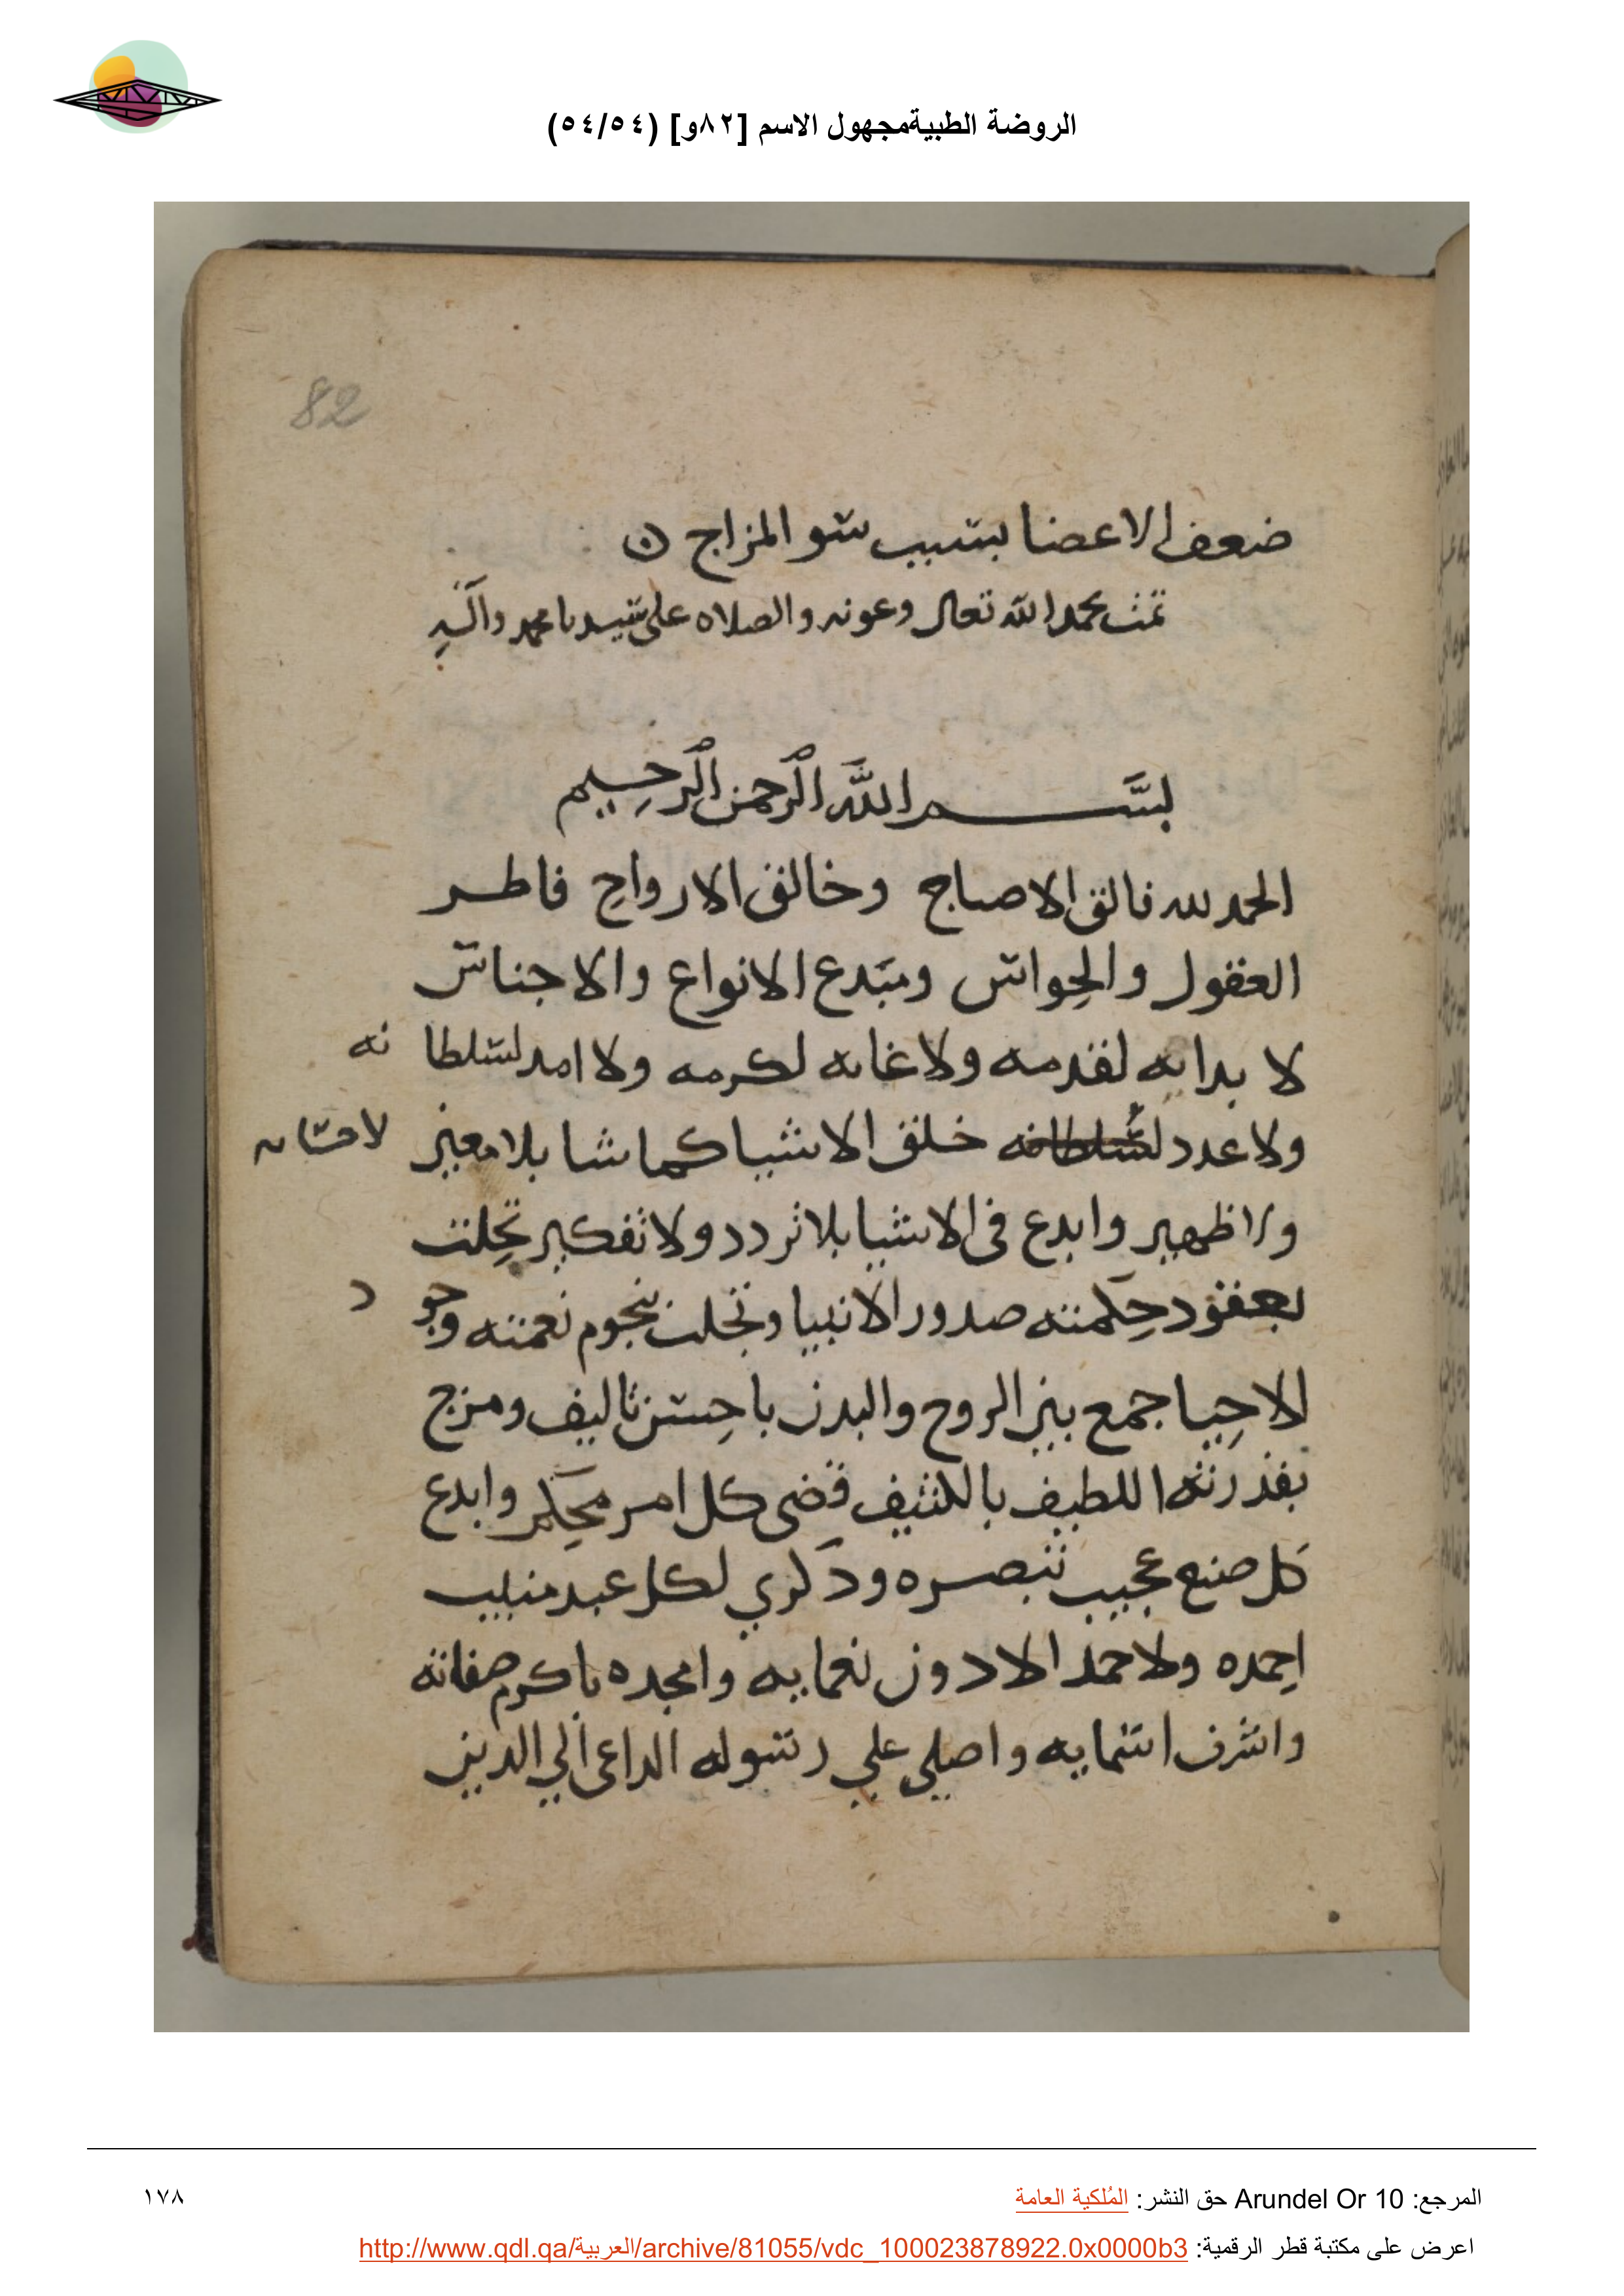 الروضة الطبيةمجهول الاسم [٨٢و] (٥٤/٥٤)
82
ضعف الاعضا بسبب سو المزاج ن
تمت بحمد الله تعالى وعونه والصلاه على سيدنا محمد وآله
بسم الله الرحمن الرحيم
الحمد لله فالق الاصباح وخالق الارواح فاطر
العقول والحواس ومبدع الانواع والاجناس
لا بدايه لقدمه ولا غايه لكرمه ولا امد لسلطانه
ولا عدد لسلطانه خلق الاشيا كما شا بلا معين
لاحسانه
ولا ظهير وابدع في الاشيا بلا تردد ولا تفكير تحلت
بعقود حكمته صدور الانبيا وتجلت بنجوم نعمته وجود
الاحيا جمع بين الروح والبدن باحسن تاليف ومزج
بقدرته اللطيف بالكثيف قضى كل امر محكم وابدع
كل صنع عجيب تبصره وذكري لكل عبد منيب
احمده ولا حمد الا دون نعمايه وامجده باكرم صفاته
واشرف اسمايه واصلي علي رسوله الداعي الي الدين
المرجع: Arundel Or 10 حق النشر: المُلكية العامة
١٧٨
اعرض على مكتبة قطر الرقمية: http://www.qdl.qa/العربية/archive/81055/vdc_100023878922.0x0000b3